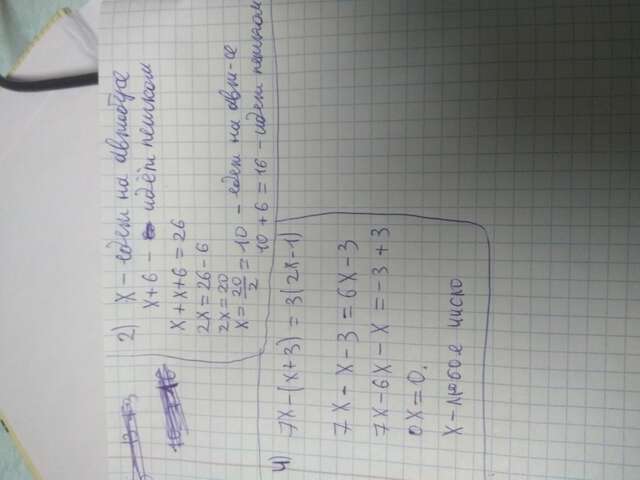 2) x - едет на автобусе
x+6 - идёт пешком
x+x+6=26
2x=26-6
2x=20
x=20/2=10 - едет на авт-се
10+6=16 - идет пешком
4) 7x-(x+3)=3(2x-1)
7x-x-3=6x-3
7x-6x-x=-3+3
0x=0.
x-любое число